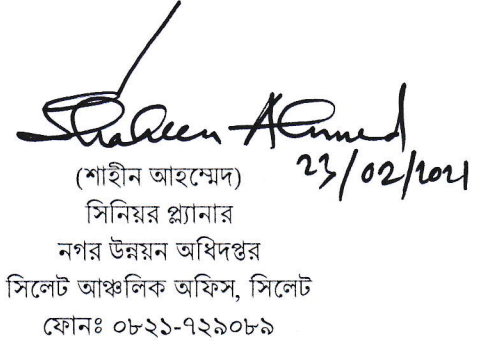 Shaheen Ahmed
23/02/2021
(শাহীন আহম্মেদ)
সিনিয়র প্ল্যানার
নগর উন্নয়ন অধিদপ্তর
সিলেট আঞ্চলিক অফিস, সিলেট
ফোনঃ ০৮২১-৭২৯০৮৯